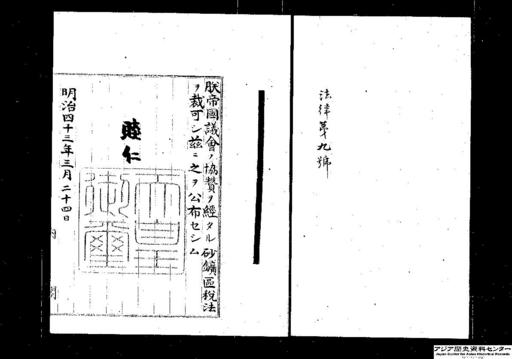 法律第九號
朕帝國議會ノ協贊ヲ經タル砂鑛區稅法
ヲ裁可シ茲ニ之ヲ公布セシム
睦仁
天皇御璽
明治四十三年三月二十四日
内閣
アジア歴史資料センター
Japan Center for Asian Historical Records